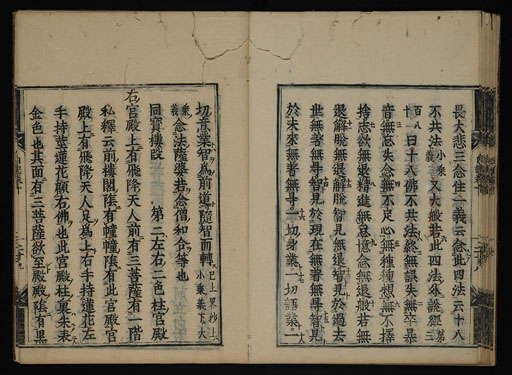 長大悲三念住一義云念此四法云十八
不共法小乘義又大般若此四法外誦經三第
百八十一曰十八佛不共法終無誤失無卒暴
音無忘失念無不定心無種種想無不擇
捨志欲無退精進無退憶念無退般若無
退解脫無退解脫智見無退智見於過去
世無著無㝵智見於現在無著無㝵智見
於未來無著無㝵一切身業一切語業一
切意業智為前道隨智而轉已上畧抄上小乘義下大
乘義念法薩婆若念僧和合等也
同寶樓段 第二左右二色柱宮殿
右宮殿上有飛降天人前有三菩薩有一階
私釋云前樓閣陰有幢幢陰有此宮殿宮
殿上有飛降天人足為上右手持蓮花左
手持莖蓮花顧右佛也此宮殿柱裏朱表
金色也其面有三菩薩欲至殿殿陰有黑